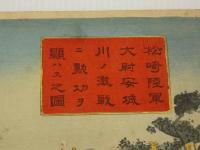 松崎陸軍
大尉安城
川ノ激戦
ニ勲功ヲ
顕ハス之圖